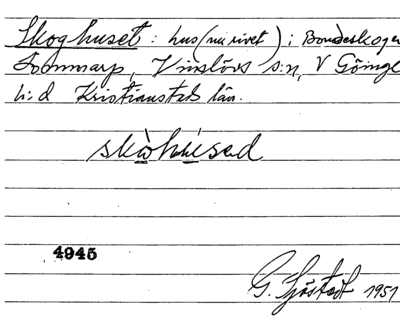 Skoghuset : hus (nu rivet) i Bondeskogen
Sommarp, Vinslövs s:n, V Göinge
h:d Kristianstads län.
skòhúsad
4945
G. Sjöstedt 1951